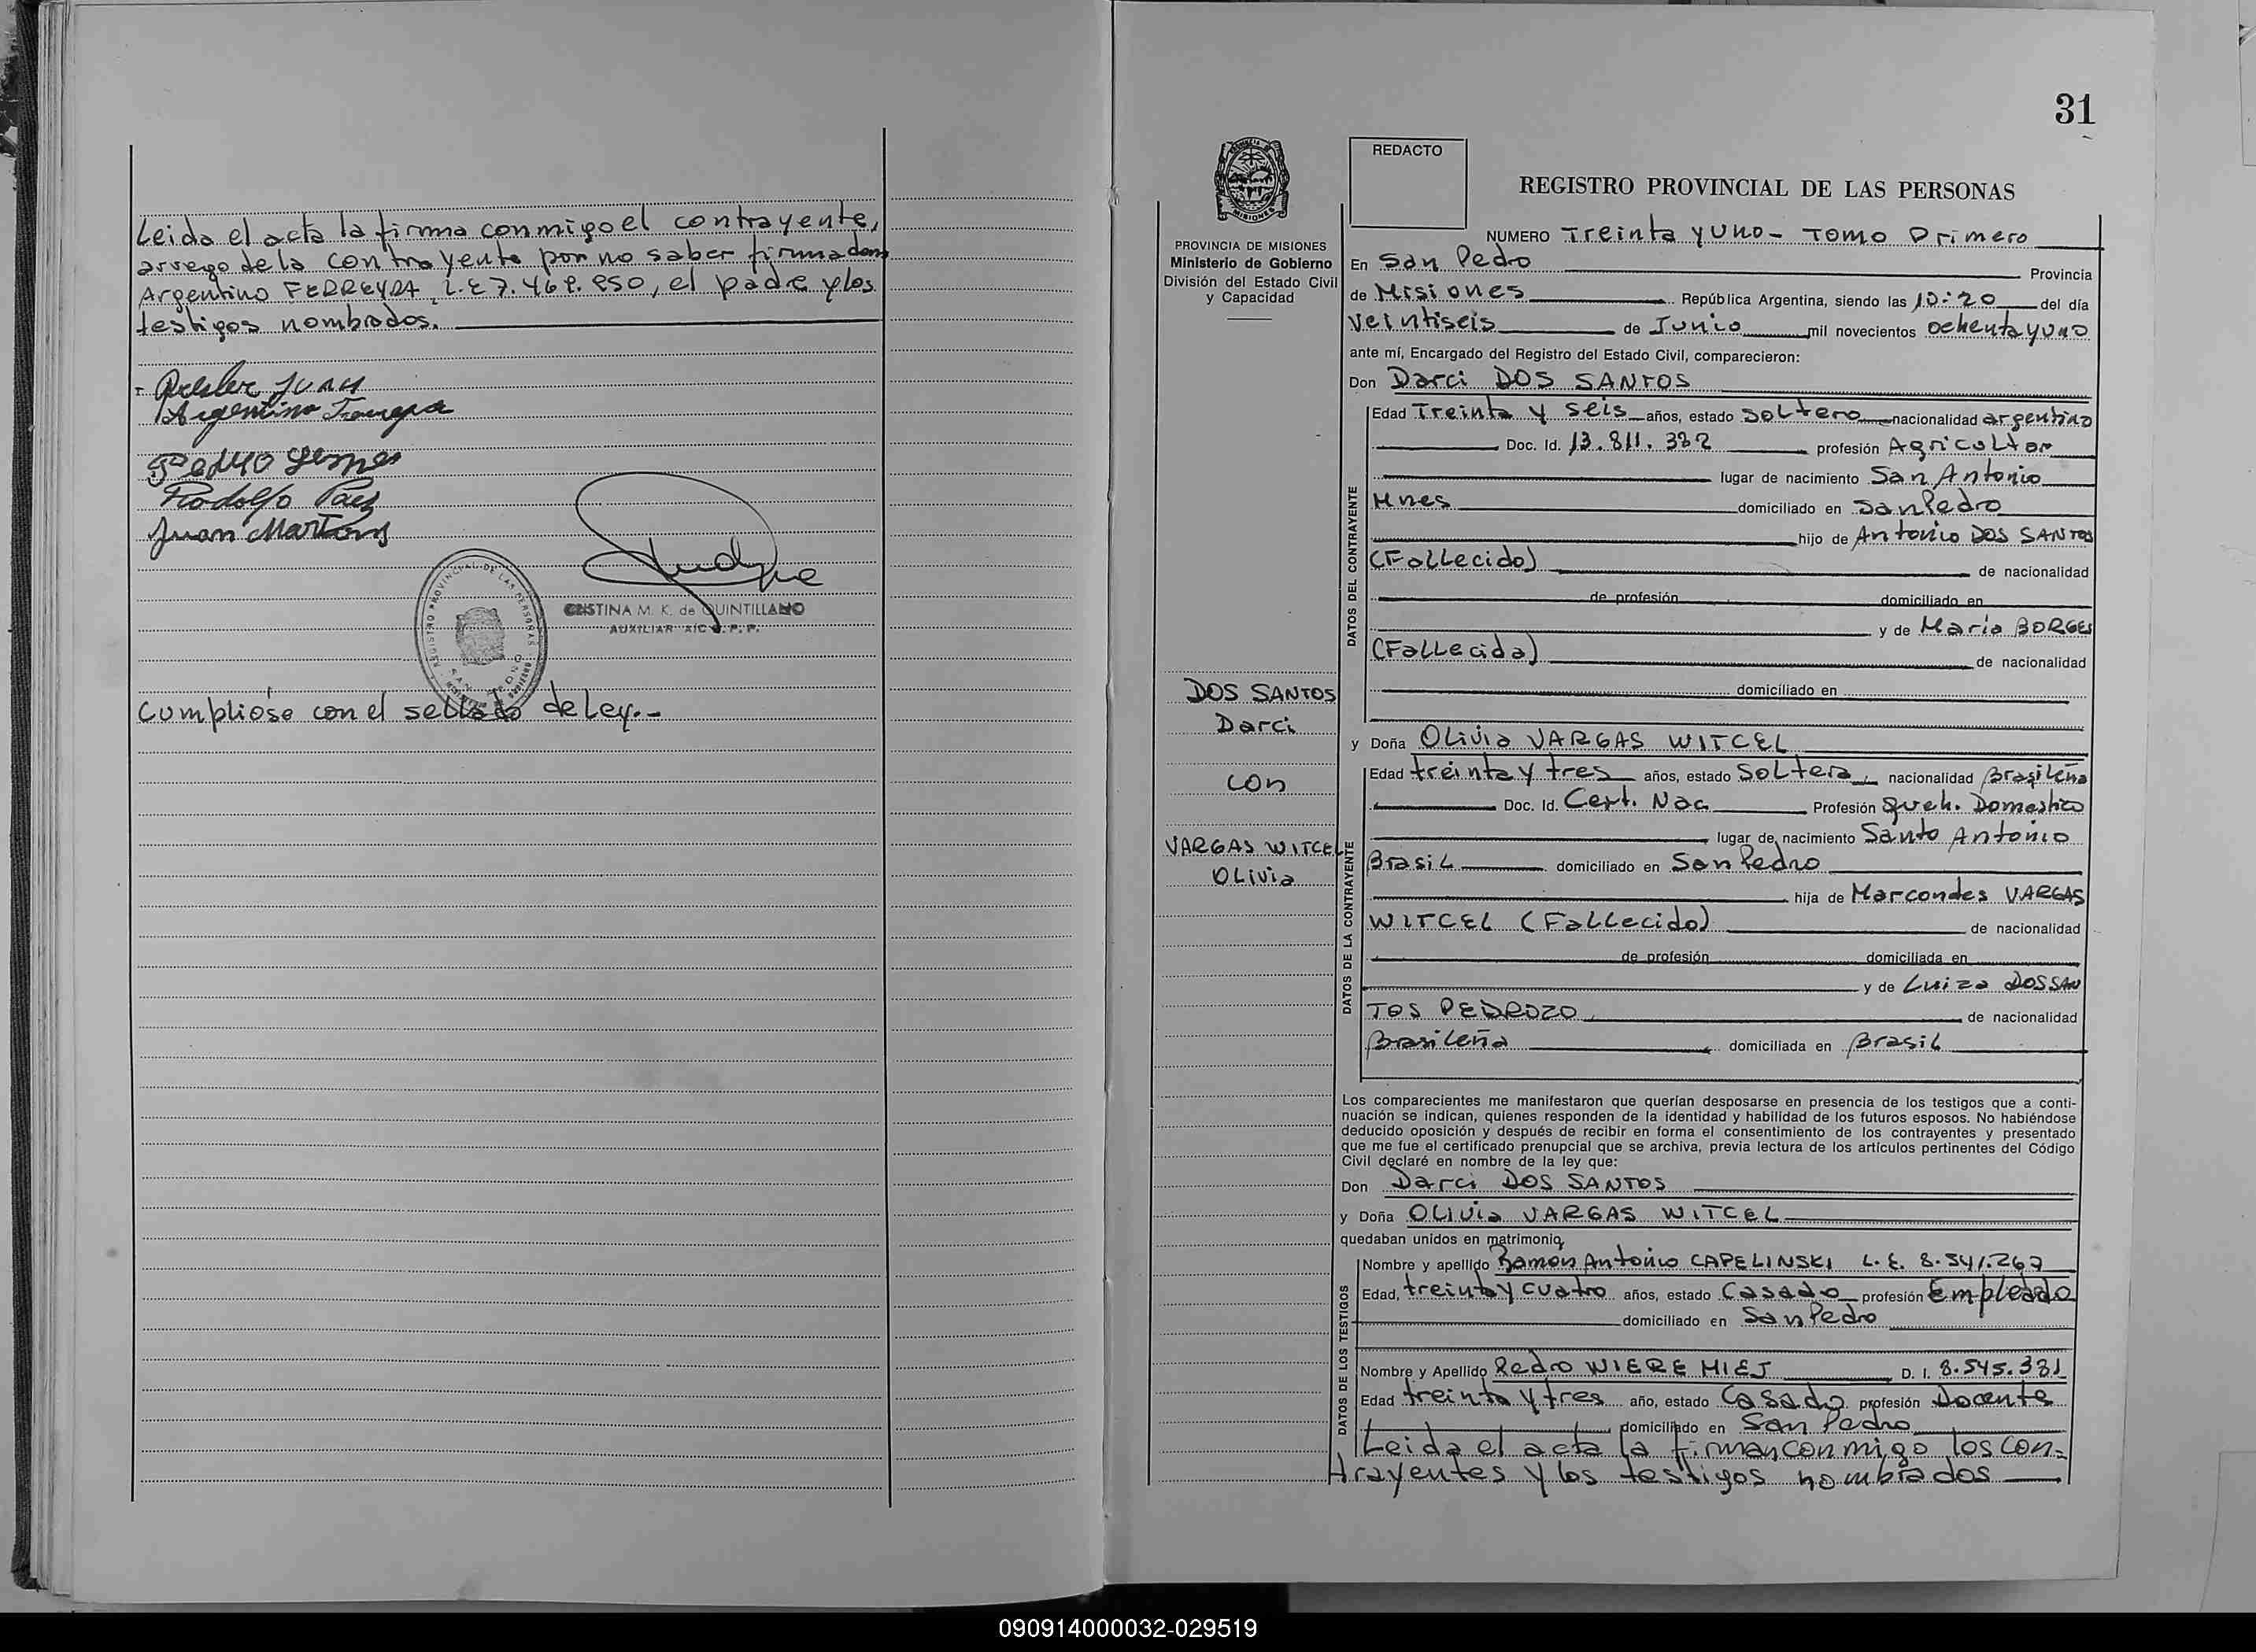 Leida el acta la firma conmigo el contrayente,
arruego de la contrayente por no saber firma don
Argentino FERREYRA, L.E 7.469.850, el padre y los
testigos nombrados.
Juan
Argentino
Pedro Gomes
Rodolfo Paez
Juan Martins
REGISTRO PROVINCIAL DE LAS PERSONAS
CRISTINA M. K. de QUINTILLANO
AUXILIAR A/C R. P. P.
Cumpliose con el sellado de Ley.-
31
REDACTO
REGISTRO PROVINCIAL DE LAS PERSONAS
MISIONES
PROVINCIA DE MISIONES
Ministerio de Gobierno
División del Estado Civil
y Capacidad
NUMERO Treinta y uno - Tomo Primero
En San Pedro Provincia
de Misiones República Argentina, siendo las 10:20 del día
veintiseis de Junio mil novecientos ochenta y uno
ante mí, Encargado del Registro del Estado Civil, comparecieron:
Don Darci DOS SANTOS
DATOS DEL CONTRAYENTE
Edad Treinta y seis años, estado soltero nacionalidad argentino
Doc. Id. 13.811.332 profesión Agricultor
lugar de nacimiento San Antonio
Mnes domiciliado en San Pedro
hijo de Antonio DOS SANTOS
(Fallecido) de nacionalidad
de profesión domiciliado en
y de Maria BORGES
(Fallecida) de nacionalidad
domiciliado en
DOS SANTOS
Darci
con
VARGAS WITCEL
Olivia
y Doña Olivia VARGAS WITCEL
DATOS DE LA CONTRAYENTE
Edad treinta y tres años, estado Soltera nacionalidad Brasileña
Doc. Id. Cert. Nac Profesión Queh. Domestico
lugar de nacimiento Santo Antonio
Brasil domiciliado en San Pedro
hija de Marcondes VARGAS
WITCEL (Fallecido) de nacionalidad
de profesión domiciliada en
y de Luiza DOS SAN
TOS PEDROZO de nacionalidad
Brasileña domiciliada en Brasil
Los comparecientes me manifestaron que querían desposarse en presencia de los testigos que a conti-
nuación se indican, quienes responden de la identidad y habilidad de los futuros esposos. No habiéndose
deducido oposición y después de recibir en forma el consentimiento de los contrayentes y presentado
que me fue el certificado prenupcial que se archiva, previa lectura de los artículos pertinentes del Código
Civil declaré en nombre de la ley que:
Don Darci DOS SANTOS
y Doña Olivia VARGAS WITCEL
quedaban unidos en matrimonio,
DATOS DE LOS TESTIGOS
Nombre y apellido Ramón Antonio CAPELINSKI L.E. 8.541.267
Edad, treinta y cuatro años, estado Casado profesión Empleado
domiciliado en San Pedro
Nombre y Apellido Pedro WIEREMIEJ D. I. 8.545.331
Edad treinta y tres año, estado Casado profesión Docente
domiciliado en San Pedro
Leida el acta la firman conmigo los con-
trayentes y los testigos nombrados
090914000032-029519